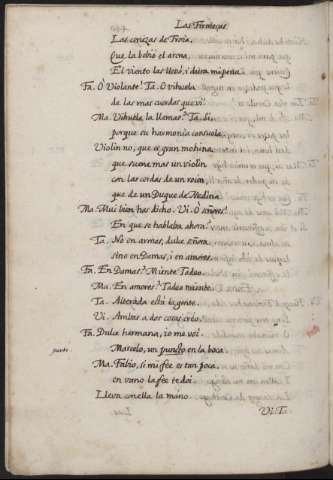 Las Ferezas
Las cenizas de Troia,
Que la bebió el arena,
El viento las llevó, i dura mi pena.
Fa. O Violante! Ta. O vihuela
de las mas cuerdas que vi!
Ma. Vihuela la llamas? Ta. Si,
porque su harmonia consuela.
Violin no, que es gran mohina
que suene mas un violin
con las cerdas de un rocin,
que de un Duque de Medina.
Ma. Mui bien has dicho. Vi. O señores!
En que se hablaba ahora?
Ta. No en armas, dulce señora,
sino en Damas, i en amores.
Fa. En Damas? Miente Tadeo.
Ma. En amores? Tadeo miente.
Ta. Alterada està la gente.
Vi. Ambas a dos cosas creo.
Fa. Dulce hermana, io me voi.
Marcelo, un punto en la boca.
punto.
Ma. Fabio, si mi fee es tan poca,
en vano la fee te doi.
Lleva con ella la mano.
Vi. Ta.